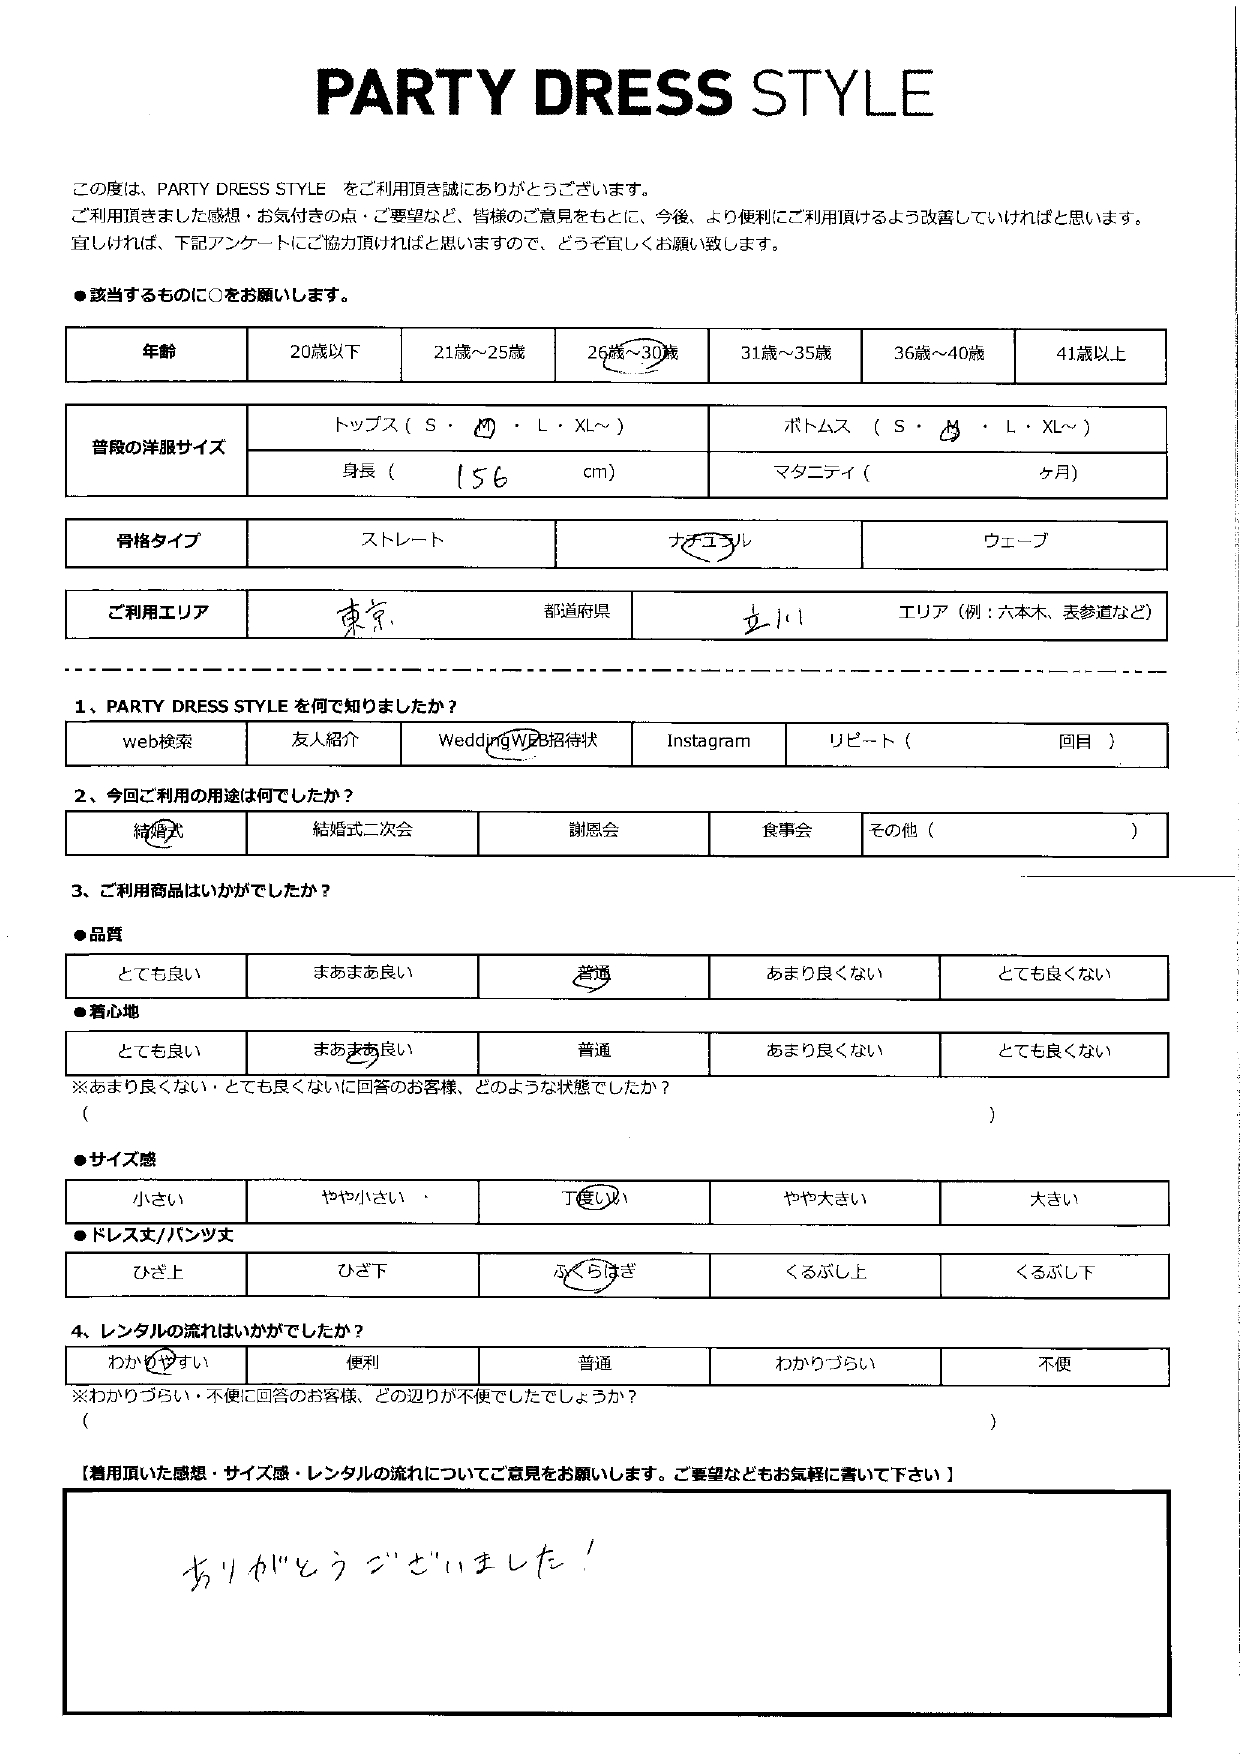 PARTY DRESS STYLE
この度は、PARTY DRESS STYLE　をご利用頂き誠にありがとうございます。
ご利用頂きました感想・お気付きの点・ご要望など、皆様のご意見をもとに、今後、より便利にご利用頂けるよう改善していければと思います。
宜しければ、下記アンケートにご協力頂ければと思いますので、どうぞ宜しくお願い致します。
●該当するものに○をお願いします。
年齢 20歳以下 21歳～25歳 26歳～30歳 31歳～35歳 36歳～40歳 41歳以上
普段の洋服サイズ トップス ( S ・ M ・ L ・ XL～ ) ボトムス ( S ・ M ・ L ・ XL～ )
身長 ( 156 cm) マタニティ ( ヶ月)
骨格タイプ ストレート ナチュラル ウェーブ
ご利用エリア 東京 都道府県 立川 エリア（例：六本木、表参道など）
1、PARTY DRESS STYLE を何で知りましたか？
web検索 友人紹介 WeddingWEB招待状 Instagram リピート ( 回目 )
2、今回ご利用の用途は何でしたか？
結婚式 結婚式二次会 謝恩会 食事会 その他 ( )
3、ご利用商品はいかがでしたか？
●品質
とても良い まあまあ良い 普通 あまり良くない とても良くない
●着心地
とても良い まあまあ良い 普通 あまり良くない とても良くない
※あまり良くない・とても良くないに回答のお客様、どのような状態でしたか？
( )
●サイズ感
小さい やや小さい 丁度いい やや大きい 大きい
●ドレス丈/パンツ丈
ひざ上 ひざ下 ふくらはぎ くるぶし上 くるぶし下
4、レンタルの流れはいかがでしたか？
わかりやすい 便利 普通 わかりづらい 不便
※わかりづらい・不便に回答のお客様、どの辺りが不便でしたでしょうか？
( )
【着用頂いた感想・サイズ感・レンタルの流れについてご意見をお願いします。ご要望などもお気軽に書いて下さい】
ありがとうございました！